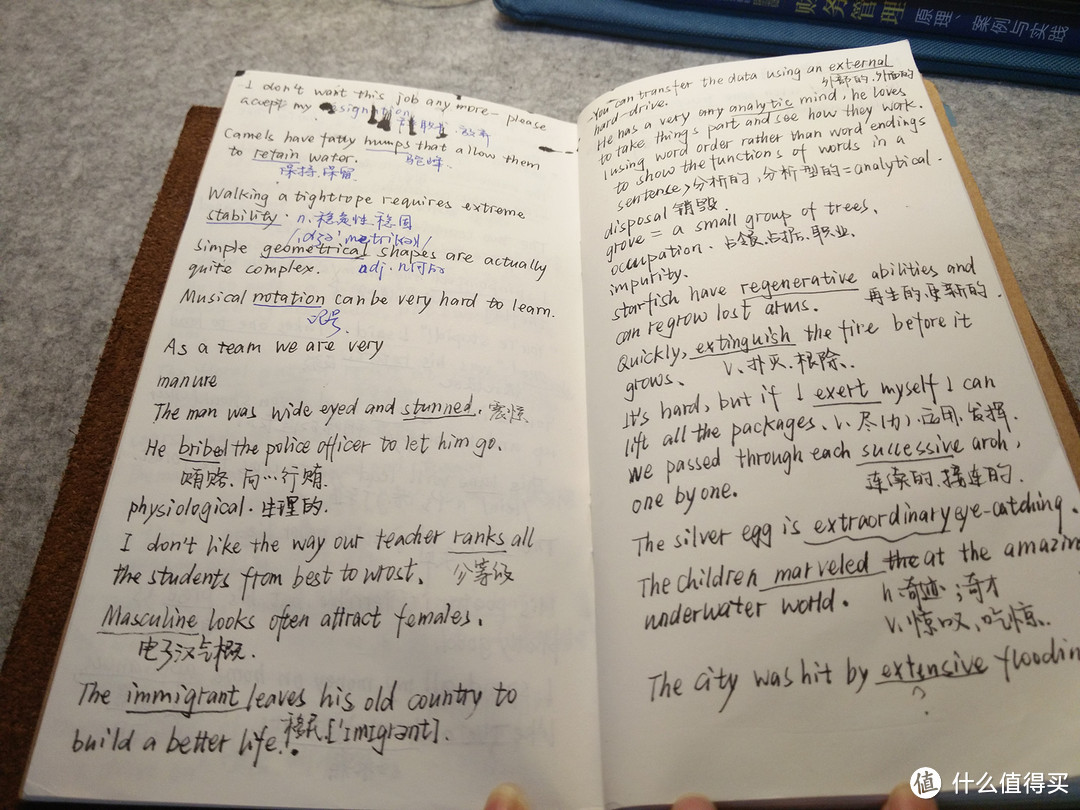 务管理
原理、案例与实践
I don't want this job any more- please
accept my
Camels have fatty humps that allow them
驼峰.
to retain water.
保持.保留
Walking a tightrope requires extreme
stability. n. 稳定性 稳固
simple geometrical shapes are actually
quite complex. adj. 几何的
Musical notation can be very hard to learn.
记号.
As a team we are very
manure
The man was wide eyed and stunned. 震惊
He bribed the police officer to let him go.
贿赂. 向…行贿.
physiological. 生理的.
I don't like the way our teacher ranks all
the students from best to wrost. 分等级
Masculine looks often attract females.
The immigrant leaves his old country to
build a better life. 移民.['Imigrant].
You can transfer the data using an external
hard-drive. 外部的.外面的
He has a very any analytic mind, he loves
to take things part and see how they work.
(using word order rather than word endings
to show the functions of words in a
sentence> 分析的, 分析型的=analytical.
disposal 销毁.
grove = a small group of trees.
occupation. 占领.占据.职业.
impurity.
starfish have regenerative abilities and
can regrow lost arms. 再生的.更新的.
Quickly, extinguish the fire before it
grows. V. 扑灭.根除.
It's hard, but if I exert myself I can
lift all the packages. V. 尽(力).应用.发挥.
We passed through each successive arch,
one by one. 连续的.接连的.
The silver egg is extraordinary eye-catching.
The children marveled the at the amazin
underwater world. n. 奇迹;奇才
V. 惊叹,吃惊.
The city was hit by extensive floodin
?
值 什么值得买